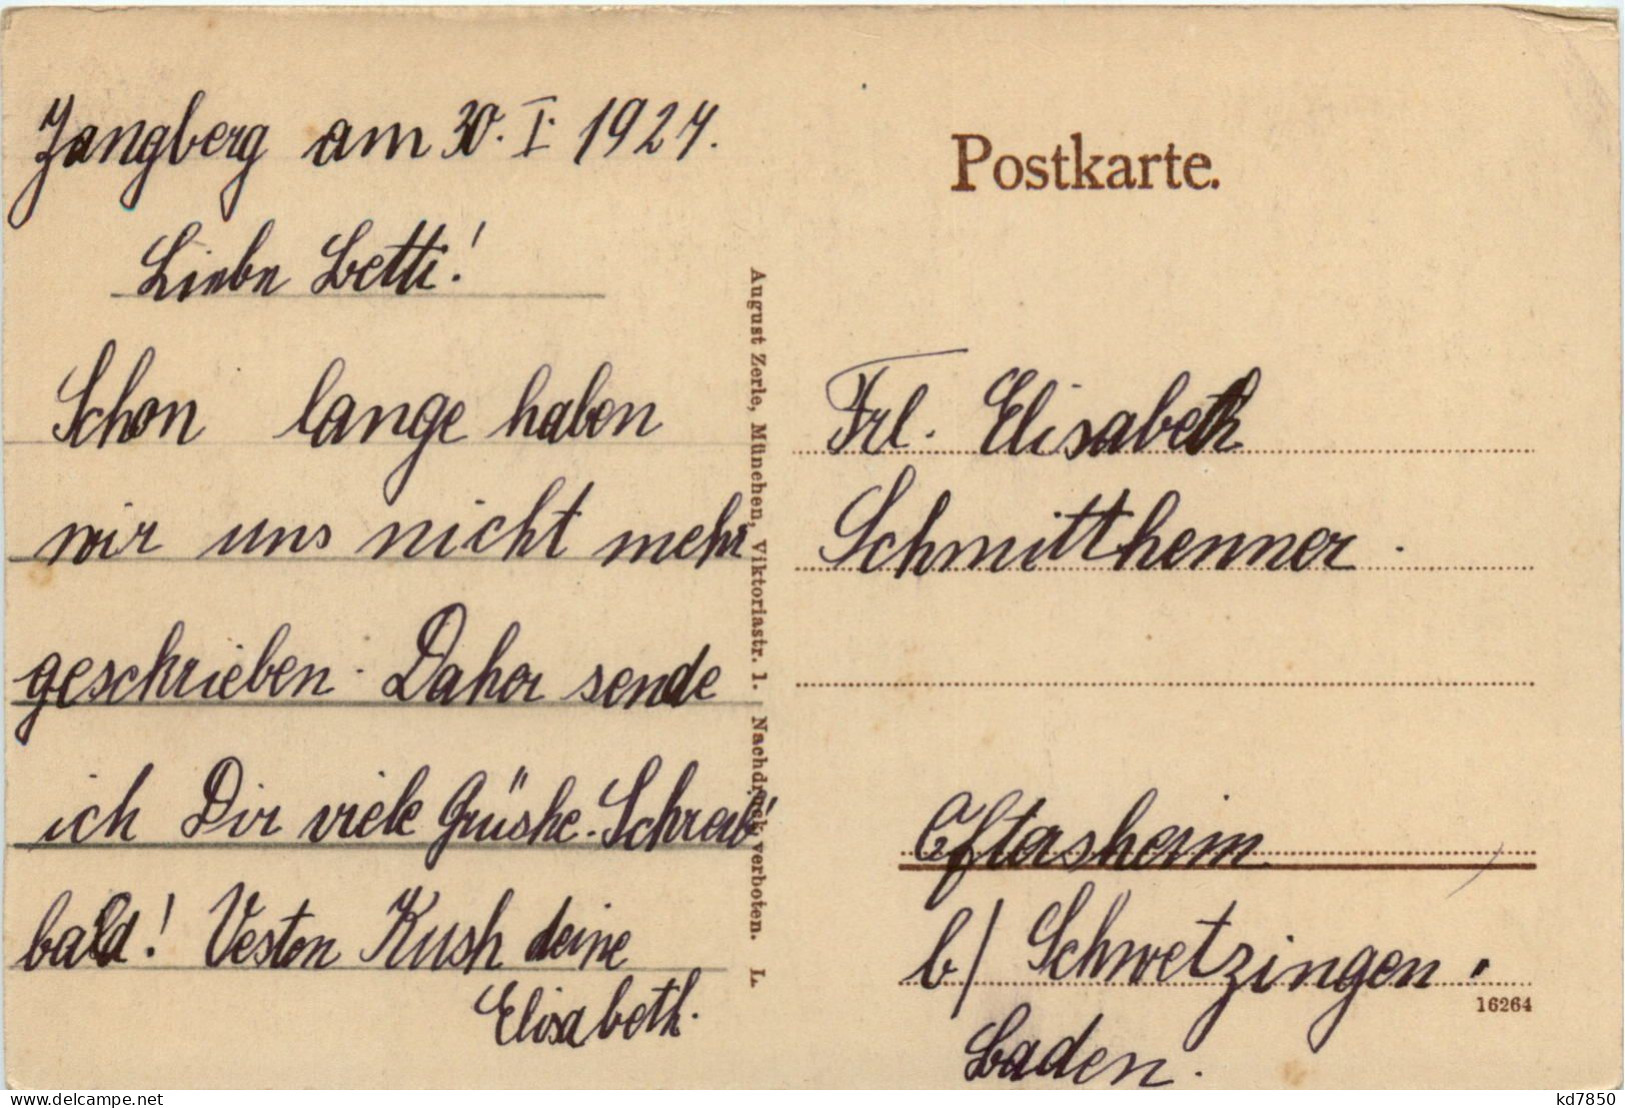 Zangberg am 30. I. 1924.
Liebe Betti!
Schon lange haben
wir uns nicht mehr
geschrieben. Daher sende
ich Dir viele Grüshe. Schreib'
bald! Vesten Kush deine
Elisabeth.
August Zerle, München, Viktoriastr. 1. Nachdruck verboten. L.
Postkarte.
Frl. Elisabeth
Schmitthenner.
Eftersheim
b/ Schwetzingen.
16264
Baden.
kd7850